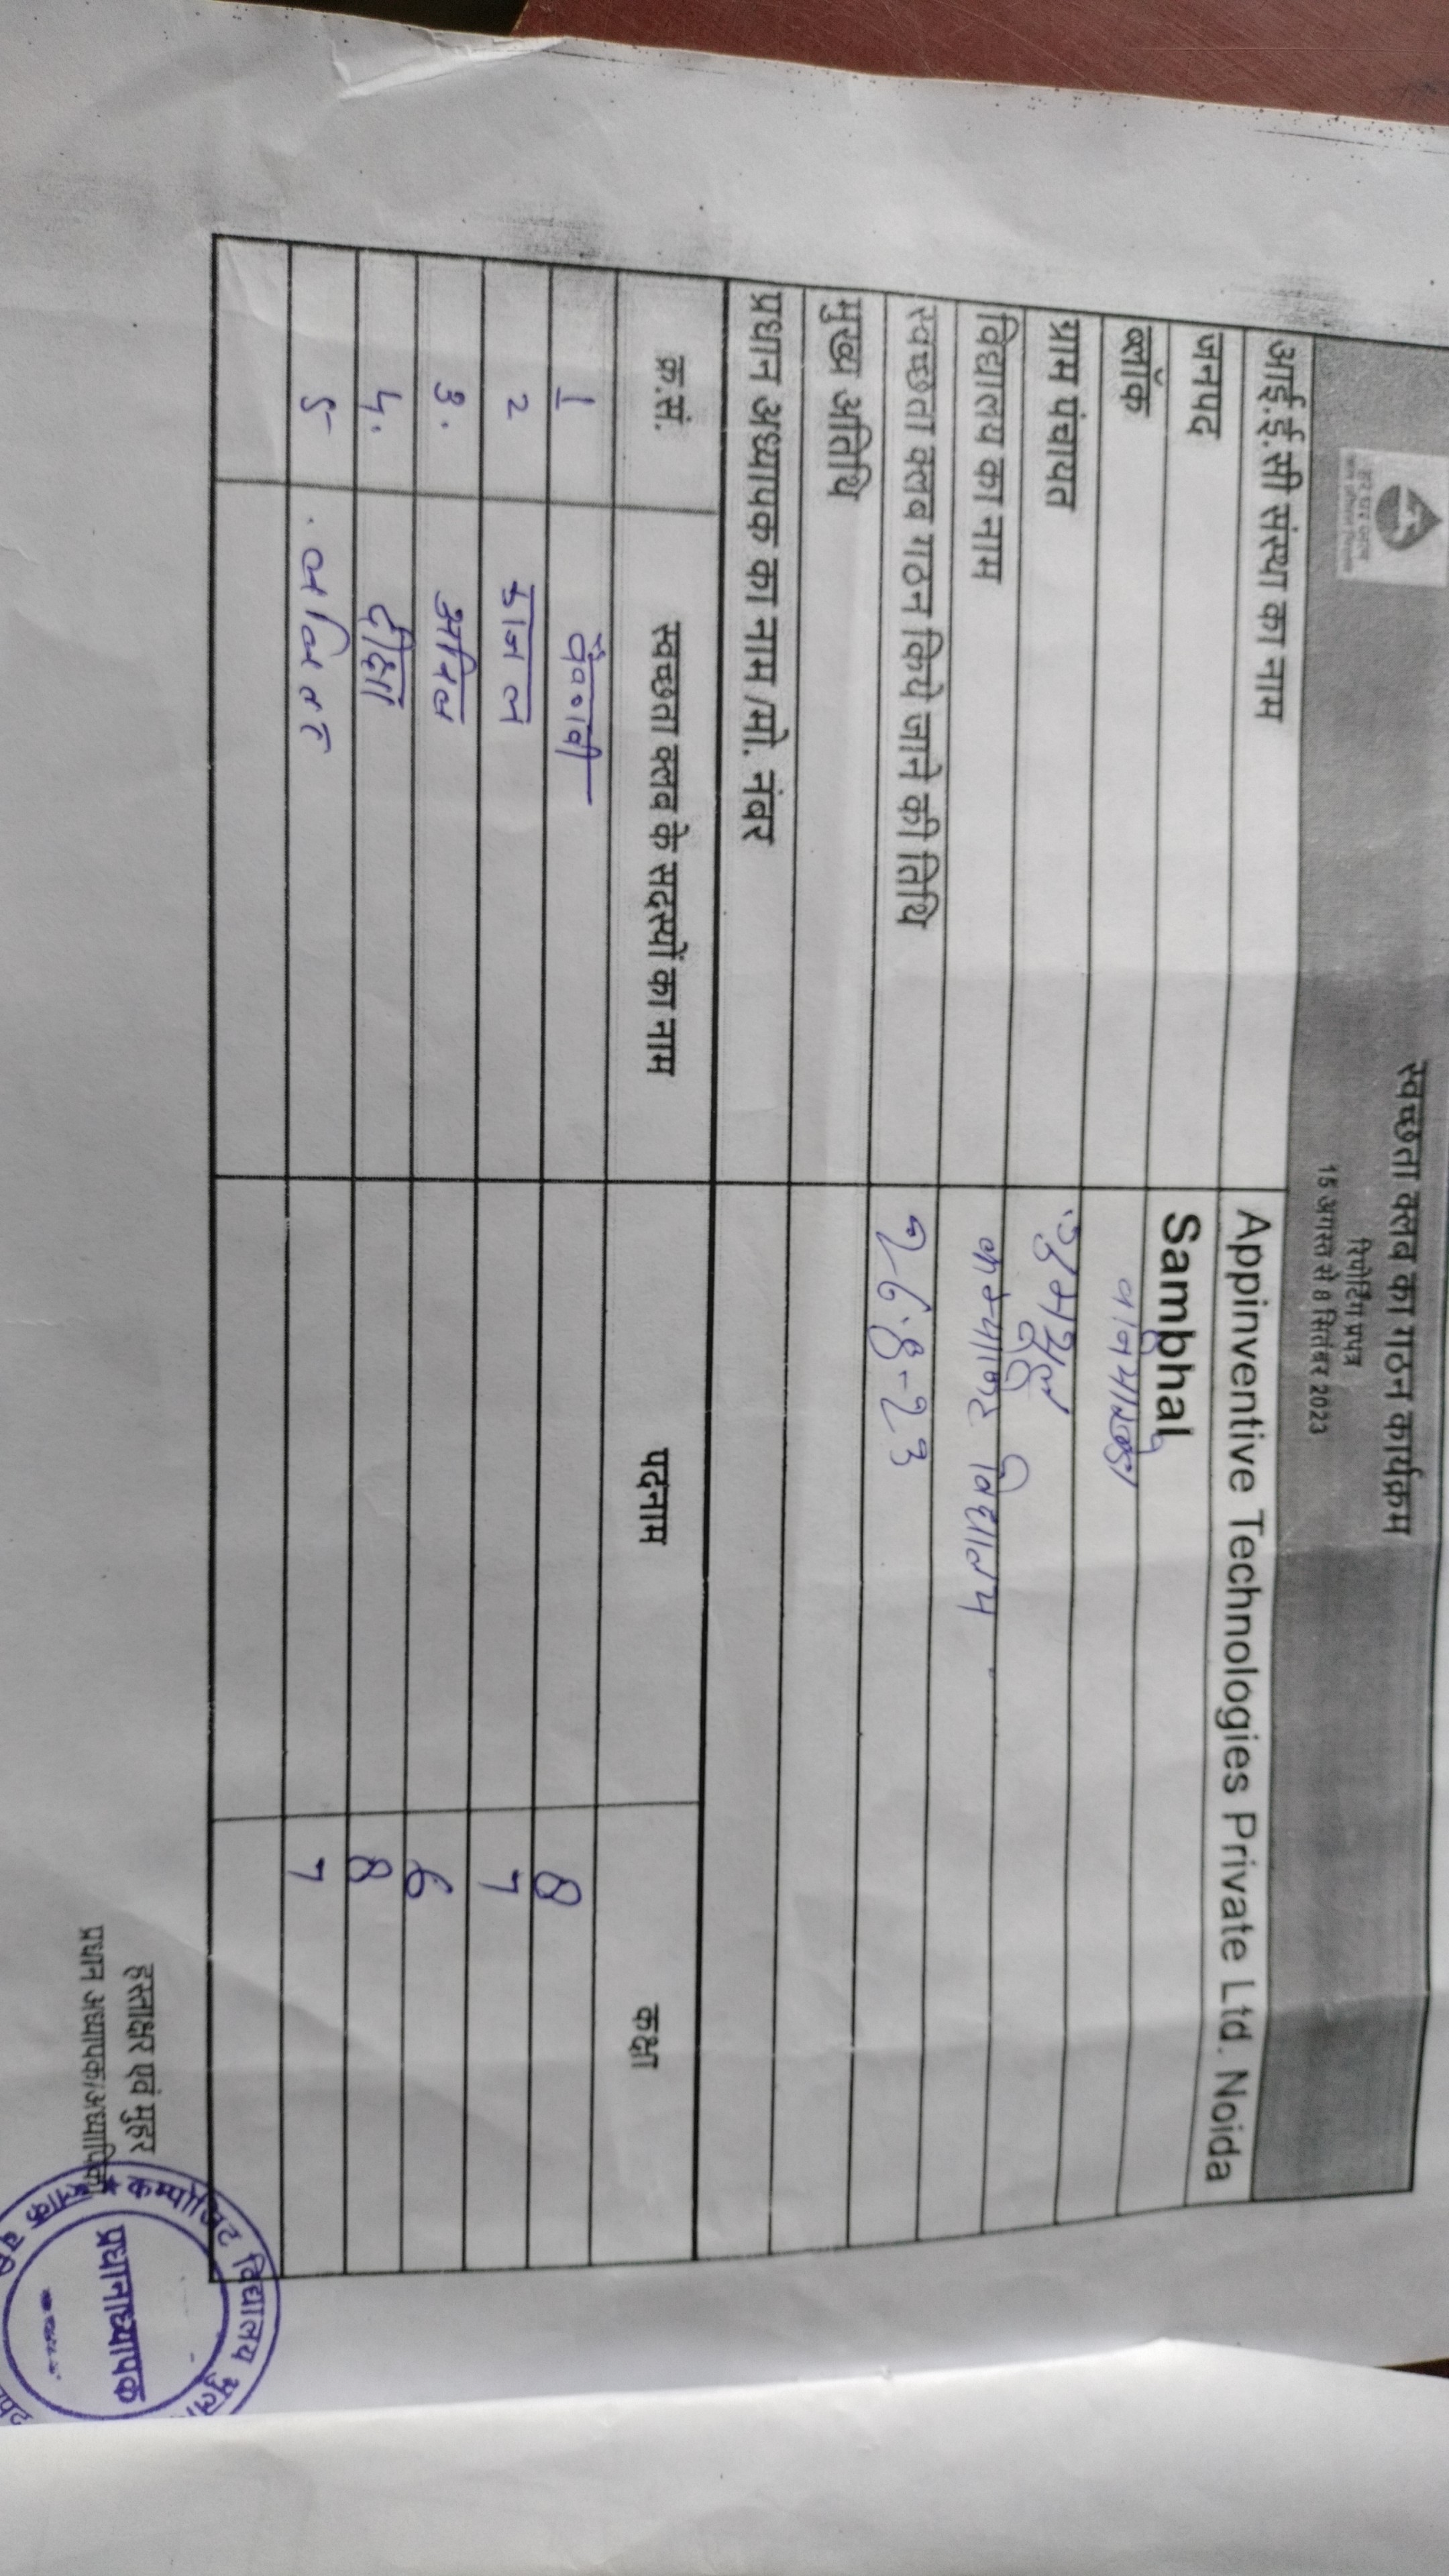 स्वच्छता क्लब का गठन कार्यक्रम
रिपोर्टिंग प्रपत्र
15 अगस्त से 8 सितंबर 2023
आई.ई.सी संस्था का नाम Appinventive Technologies Private Ltd. Noida
जनपद Sambhal
ब्लॉक
ग्राम पंचायत
विद्यालय का नाम कम्पोजिट विद्यालय
स्वच्छता क्लब गठन किये जाने की तिथि 26.8-23
मुख्य अतिथि
प्रधान अध्यापक का नाम /मो. नंबर
क्र.सं. स्वच्छता क्लब के सदस्यों का नाम पदनाम कक्षा
1 वैष्णवी 8
2 काजल 7
3. 6
4. दीक्षा 8
5 7
हस्ताक्षर एवं मुहर
प्रधान अध्यापक/अध्यापिका
कम्पोजिट विद्यालय
प्रधानाध्यापक